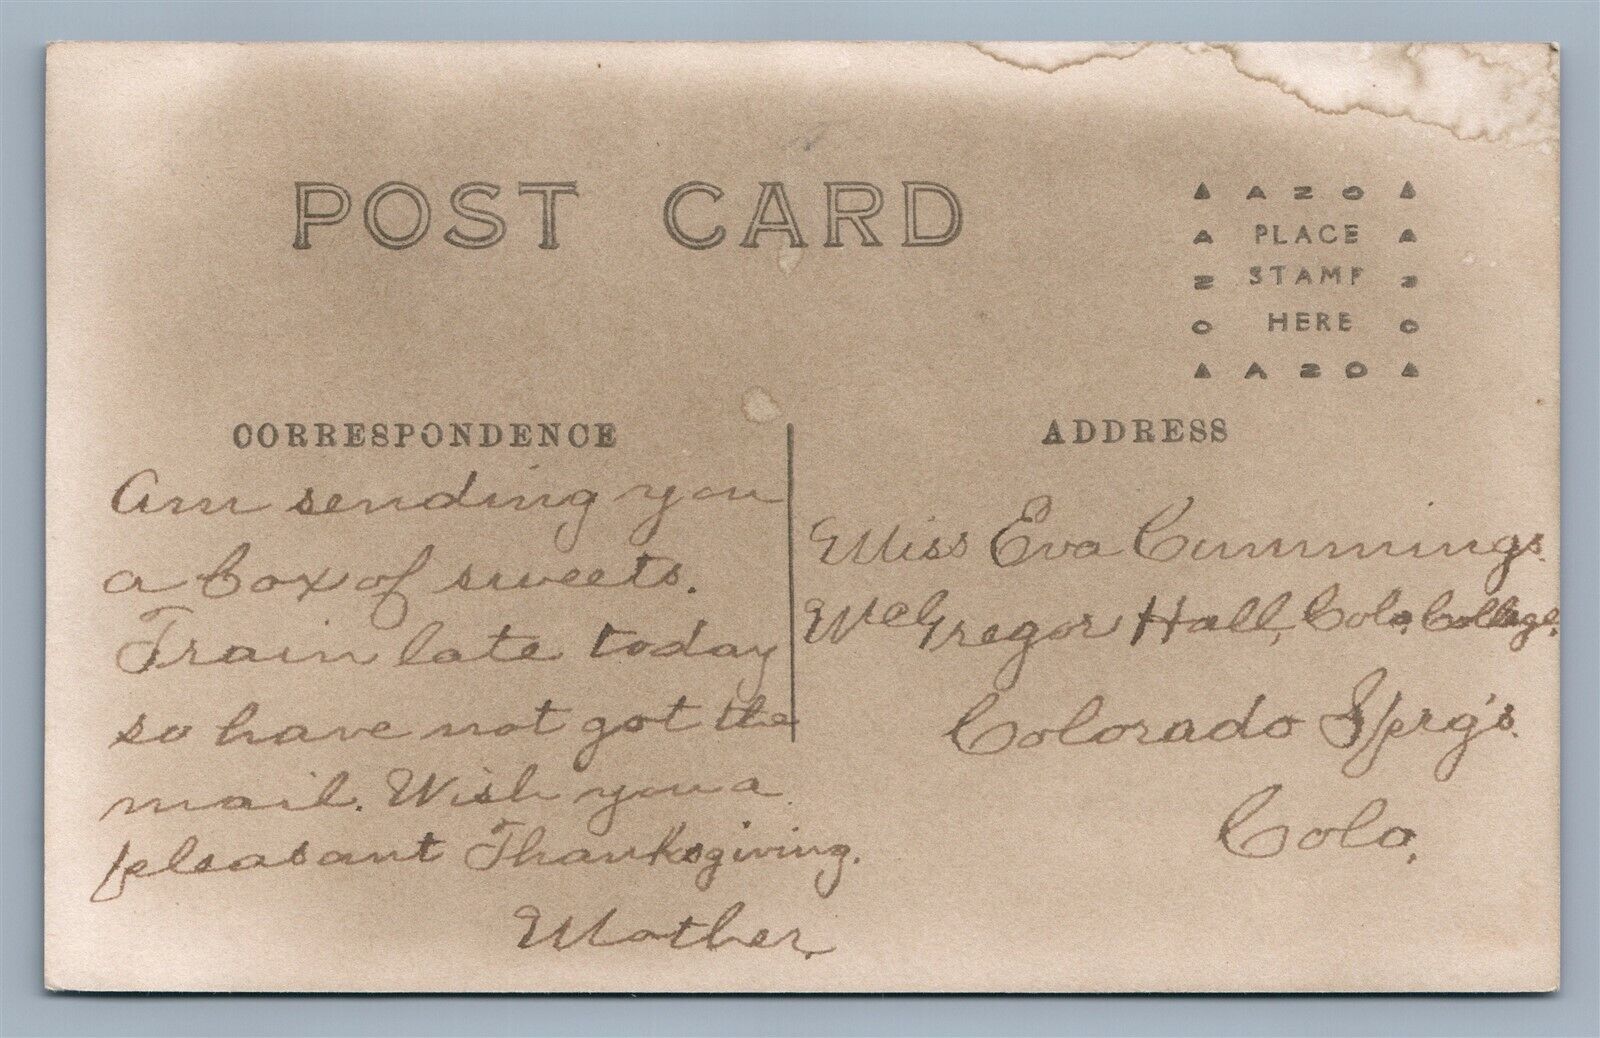 POST CARD
AZO
PLACE
STAMP
HERE
AZO
CORRESPONDENCE
Am sending you
a box of sweets.
Train late today
so have not got the
mail. Wish you a
pleasant Thanksgiving.
Mother.
ADDRESS
Miss Eva Cummings.
McGregor Hall, Colo. College.
Colorado Sprg's.
Colo.